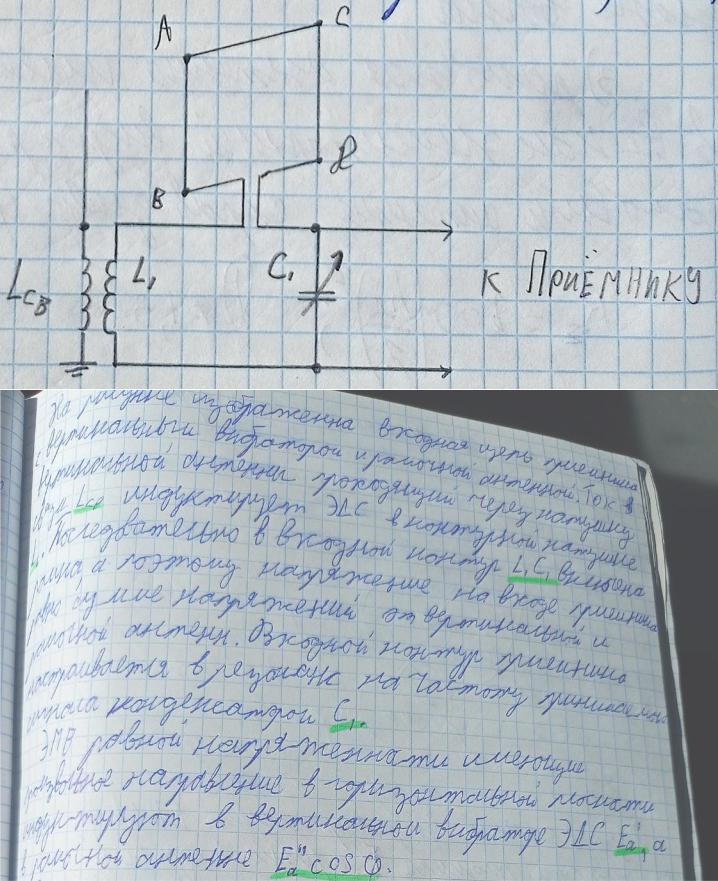 A
C
B
D
Lсв
L₁
C₁
к Приёмнику
На рисунке изображенна входная цепь приемника
с вертикальный вибратором и рамочной антенной. Ток в
вертикальной антенны проходящий через катушку
связи Lсв индуктирует ЭДС в контурной катушке
L₁. Последвательно в входной контур L₁ C₁ включена
рамка, а поэтому напряжение на входе приемника
равно сумме напряжений от вертикальной и
рамочной антенн. Входной контур приемника
настраивается в резонанс на частоту принимаемого
сигнала конденсатором C₁.
ЭМВ равной напряженнати имеющие
произвольное направление в горизонтальной плоскости
индуктируют в вертикальной вибраторе ЭДС Eа', а
в рамочной антенне Eа'' cos φ.